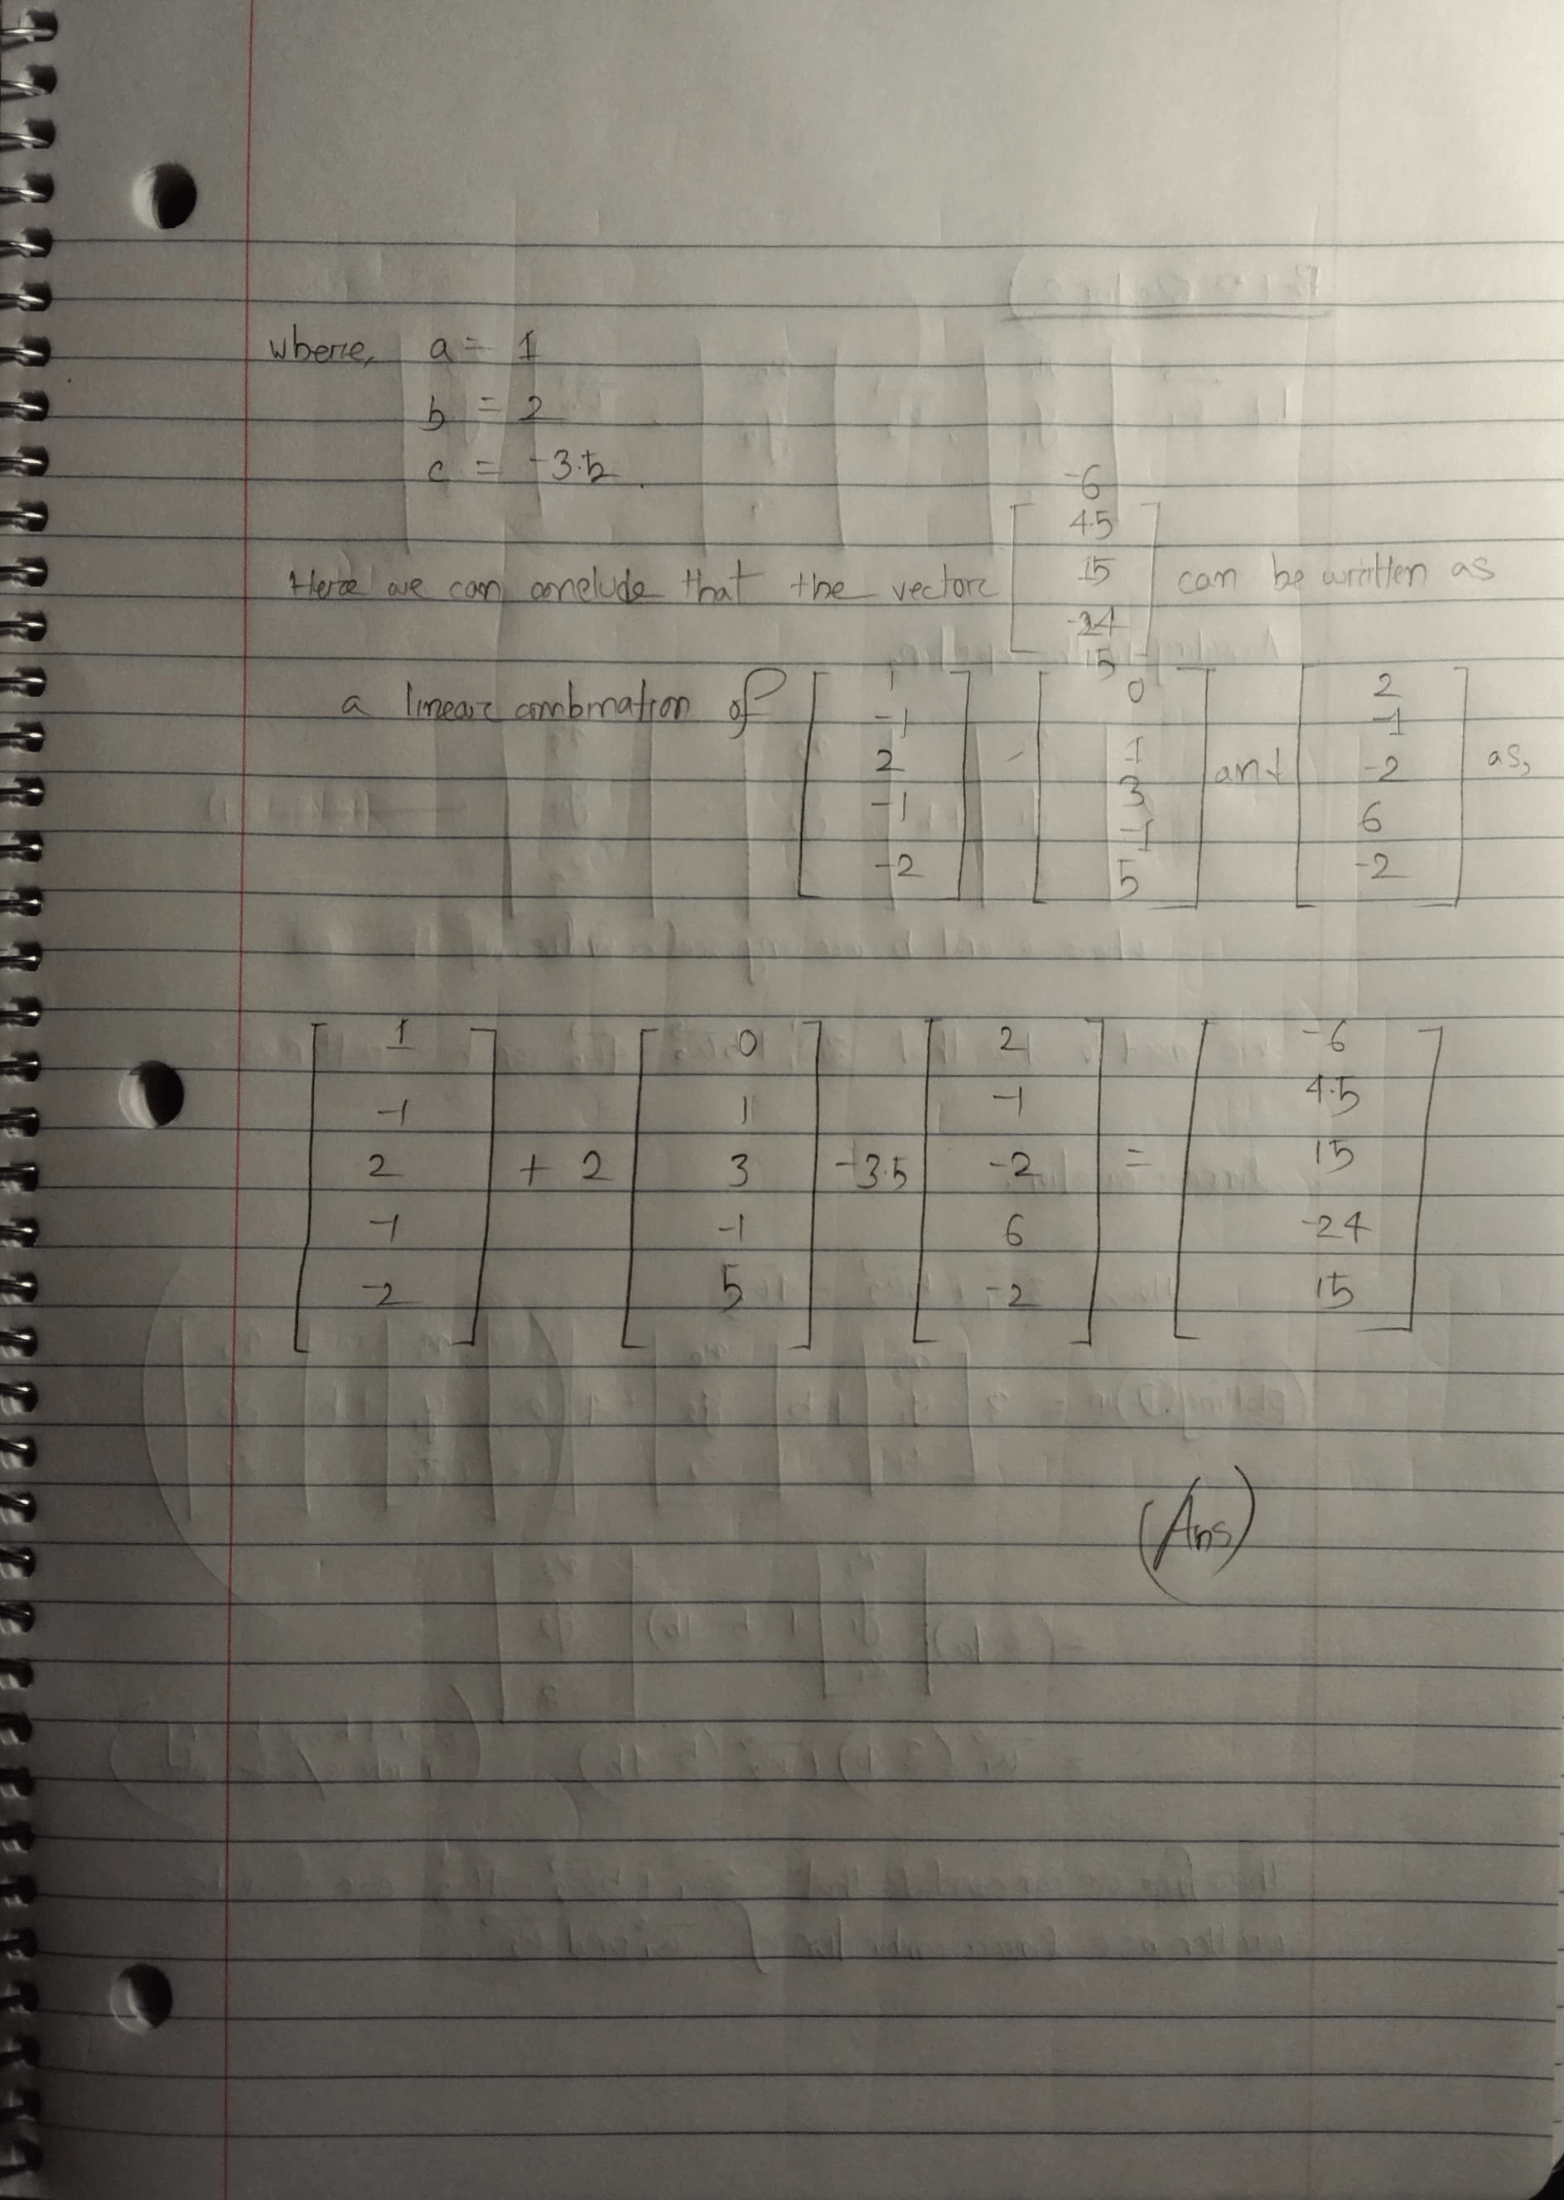 where, a = 1
b = 2
c = -3.5
Here we can conclude that the vector [-6 4.5 15 -24 15] can be written as
a linear combination of [1 -1 2 -1 -2], [0 1 3 -1 5] and [2 -1 -2 6 -2] as,
[1 -1 2 -1 -2] + 2 [0 1 3 -1 5] -3.5 [2 -1 -2 6 -2] = [-6 4.5 15 -24 15]
(Ans)